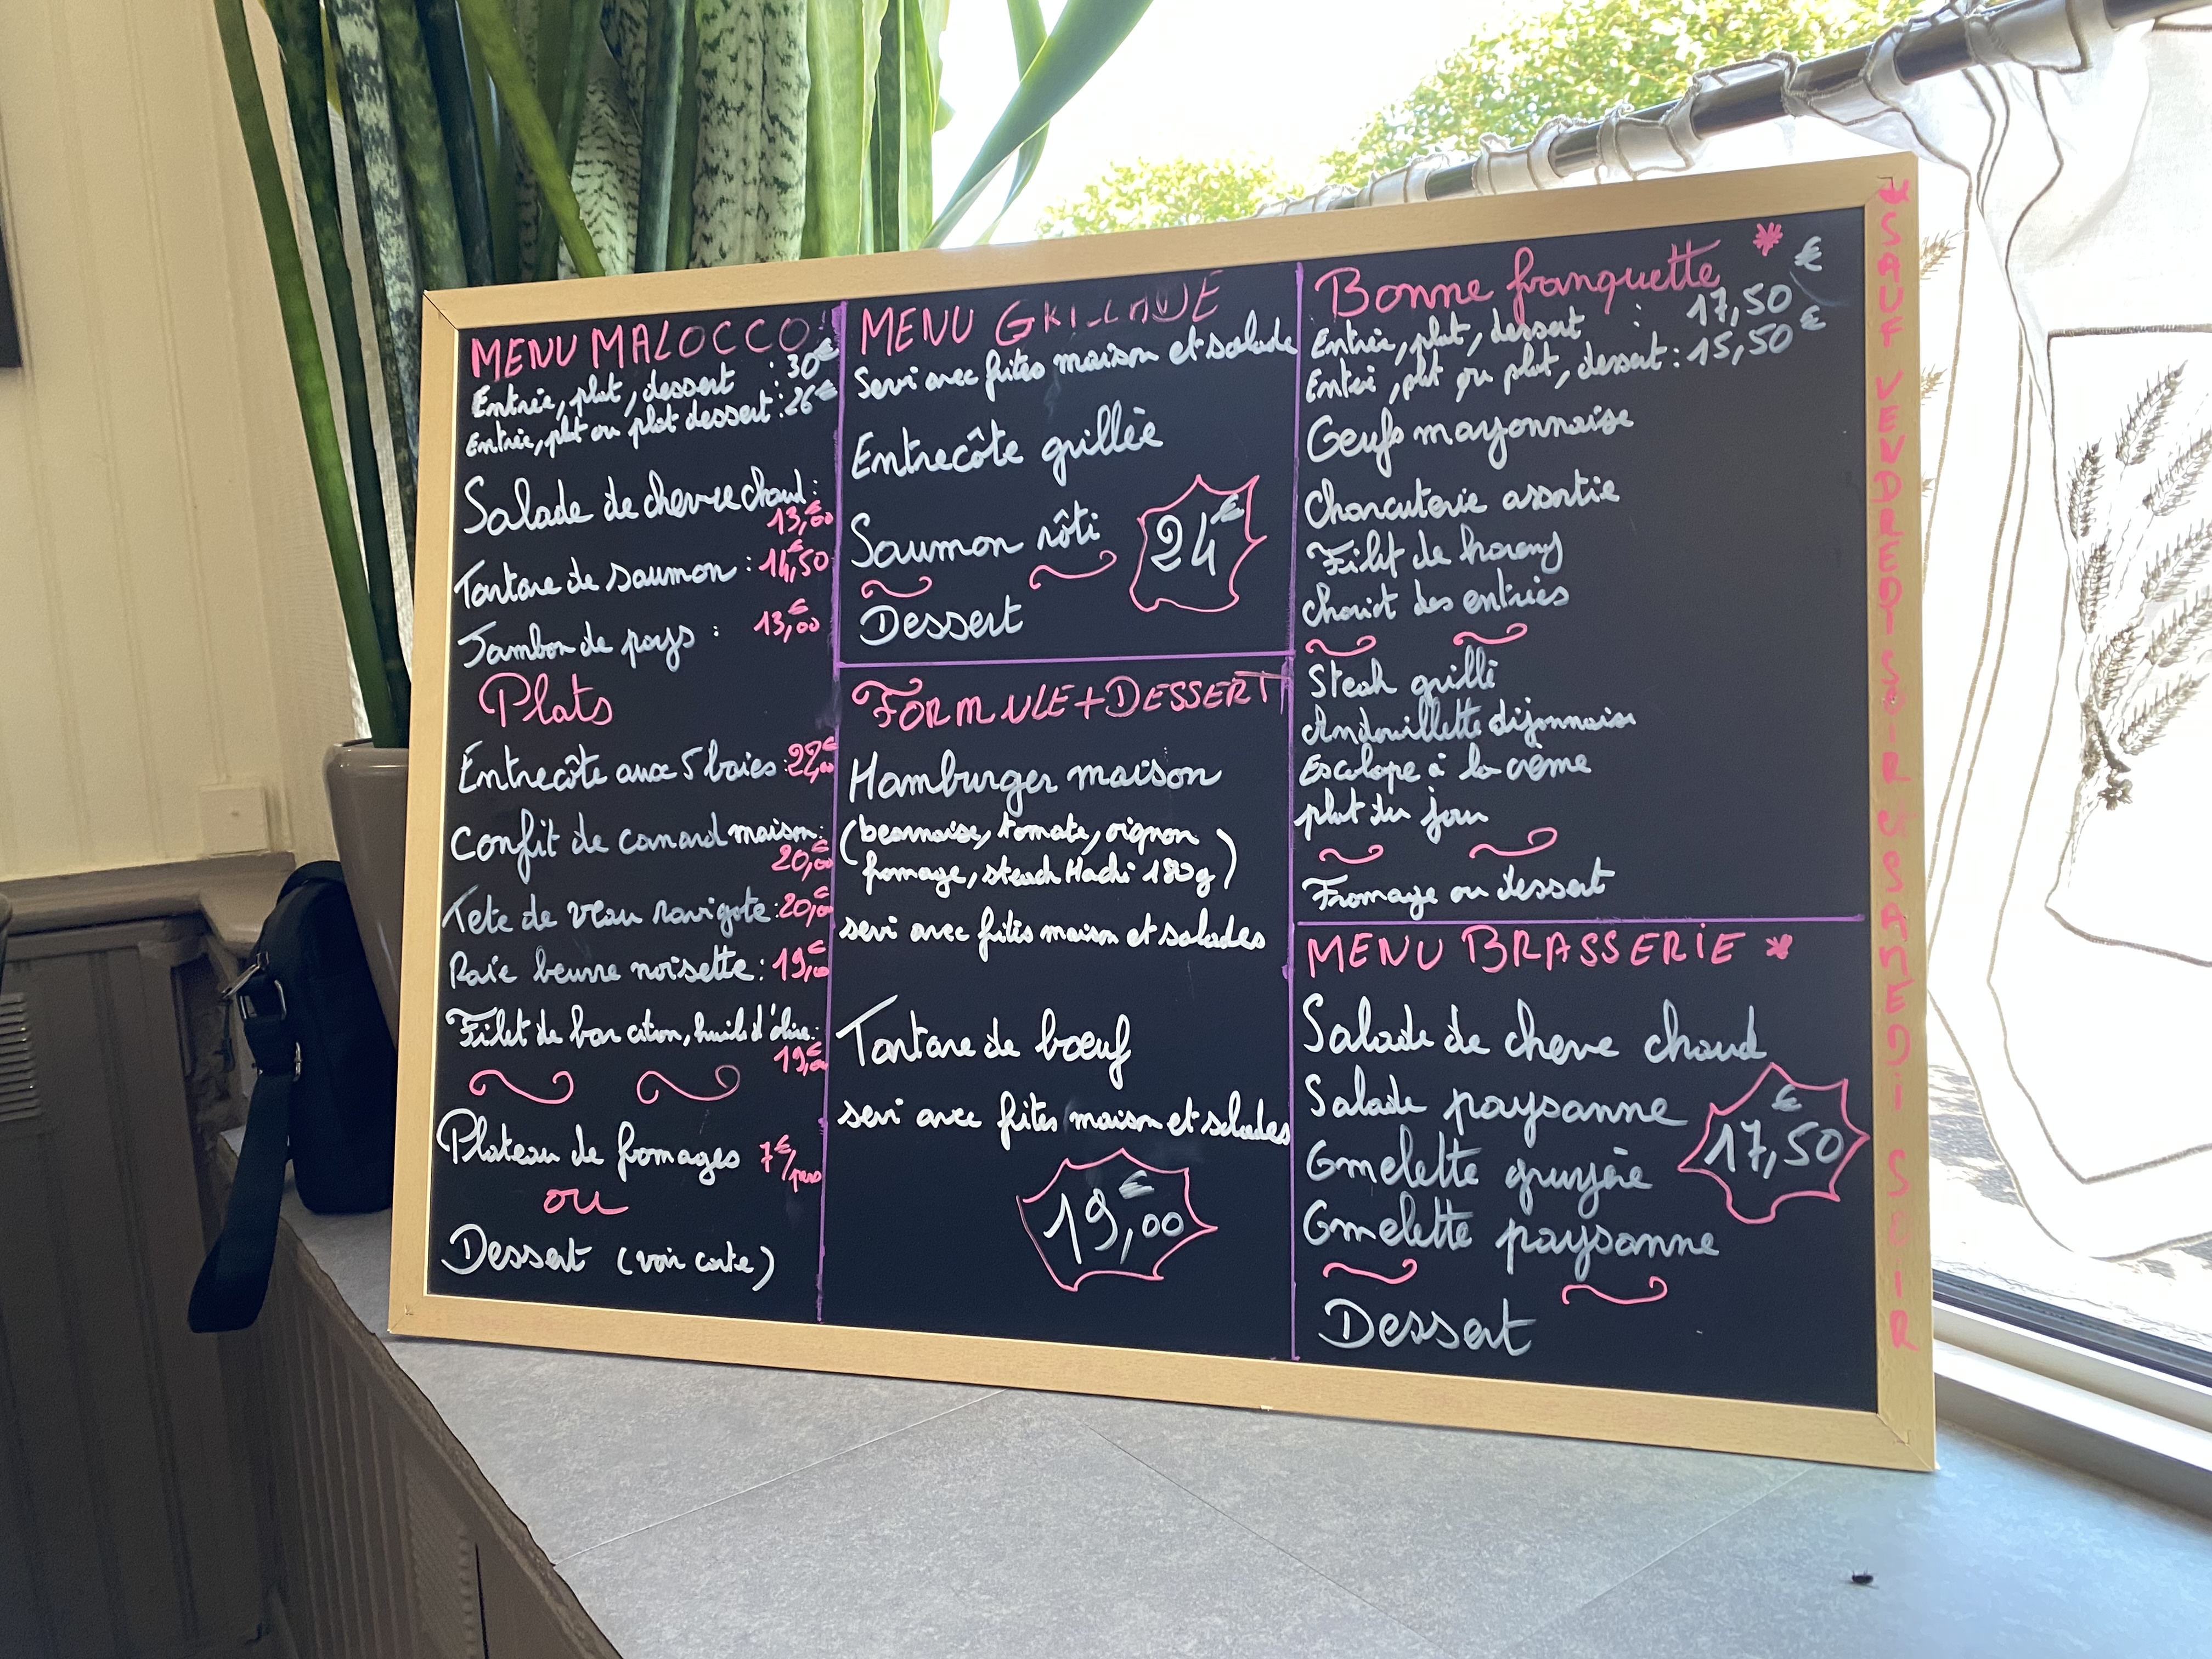 MENU MALOCCO
Entrée, plat, dessert : 30€
Entrée, plat ou plat dessert : 26€
Salade de chevre chaud :
13,00€
Tartare de saumon : 14,50€
Jambon de pays : 13,00€
Plats
Entrecôte aux 5 baies : 22,00€
Confit de canard maison :
20,00€
Tete de veau ravigote : 20,00€
Raie beurre noisette : 19,00€
Filet de bar citron, huile d'olive :
19,00€
Plateau de fromages 7€/pers
ou
Dessert (voir carte)
MENU GRILLADE
Servi avec frites maison et salade
Entrecôte grillée
Saumon rôti
24€
Dessert
FORMULE + DESSERT
Hamburger maison
(bearnaise, tomate, oignon
fromage, steach Haché 180g)
servi avec frites maison et salades
Tartare de bœuf
servi avec frites maison et salades
19,00€
Bonne franquette * €
Entrée, plat, dessert : 17,50
Entrée, plat ou plat, dessert : 15,50€
Oeufs mayonnaise
Charcuterie assortie
Filet de hareng
chariot des entrées
Steak grillé
Andouillette dijonnaise
Escalope à la crème
plat du jour
Fromage ou dessert
MENU BRASSERIE *
Salade de chevre chaud
Salade paysanne
17,50€
Omelette gruyère
Omelette paysanne
Dessert
* SAUF VENDREDI SOIR & SAMEDI SOIR